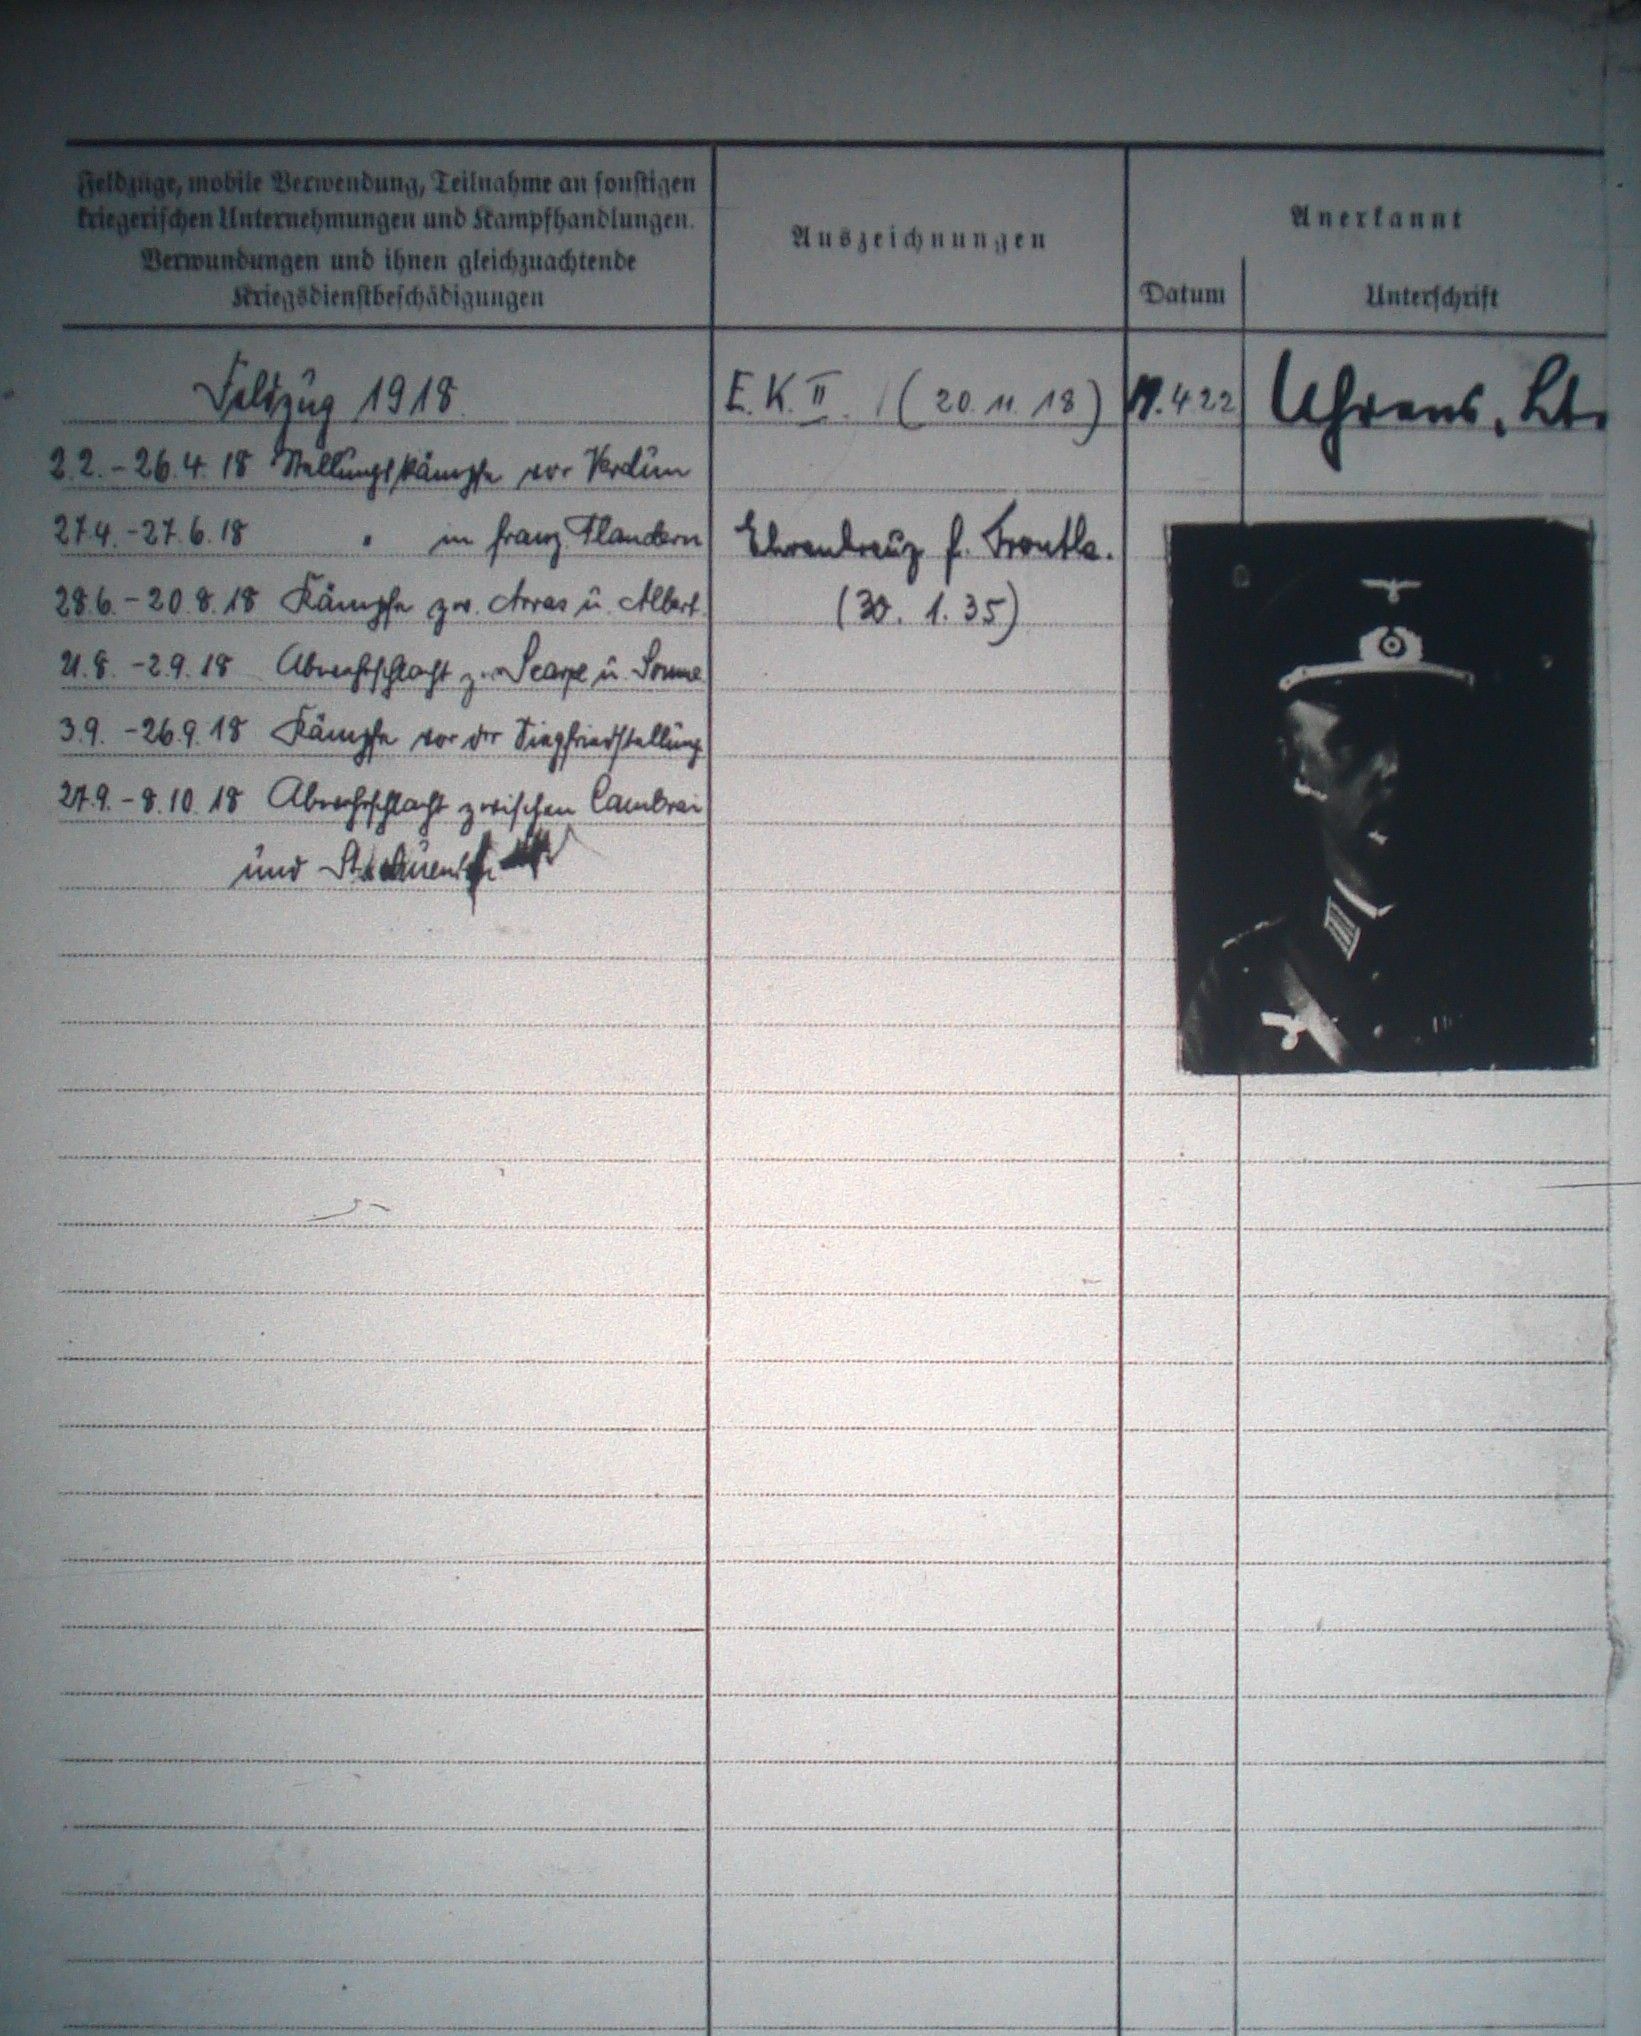 Feldzüge, mobile Verwendung, Teilnahme an sonstigen
kriegerischen Unternehmungen und Kampfhandlungen.
Verwundungen und ihnen gleichzuachtende
Kriegsdienstbeschädigungen
Auszeichnungen
Anerkannt
Datum
Unterschrift
Feldzug 1918.
E.K. II. (20.11.18)
4.22
Lt.
2.2. - 26.4.18 Stellungskämpfe vor Verdun
27.4. - 27.6.18 " in franz. Flandern
Ehrenkreuz f. Frontk.
28.6. - 20.8.18 Kämpfe zw. Arras u. Albert.
(30.1.35)
21.8. - 2.9.18 Abwehrschlacht Scarpe u. Somme.
3.9. - 26.9.18 Kämpfe vor der Siegfriedstellung
27.9. - 8.10.18 Abwehrschlacht zwischen Cambrai
und St.